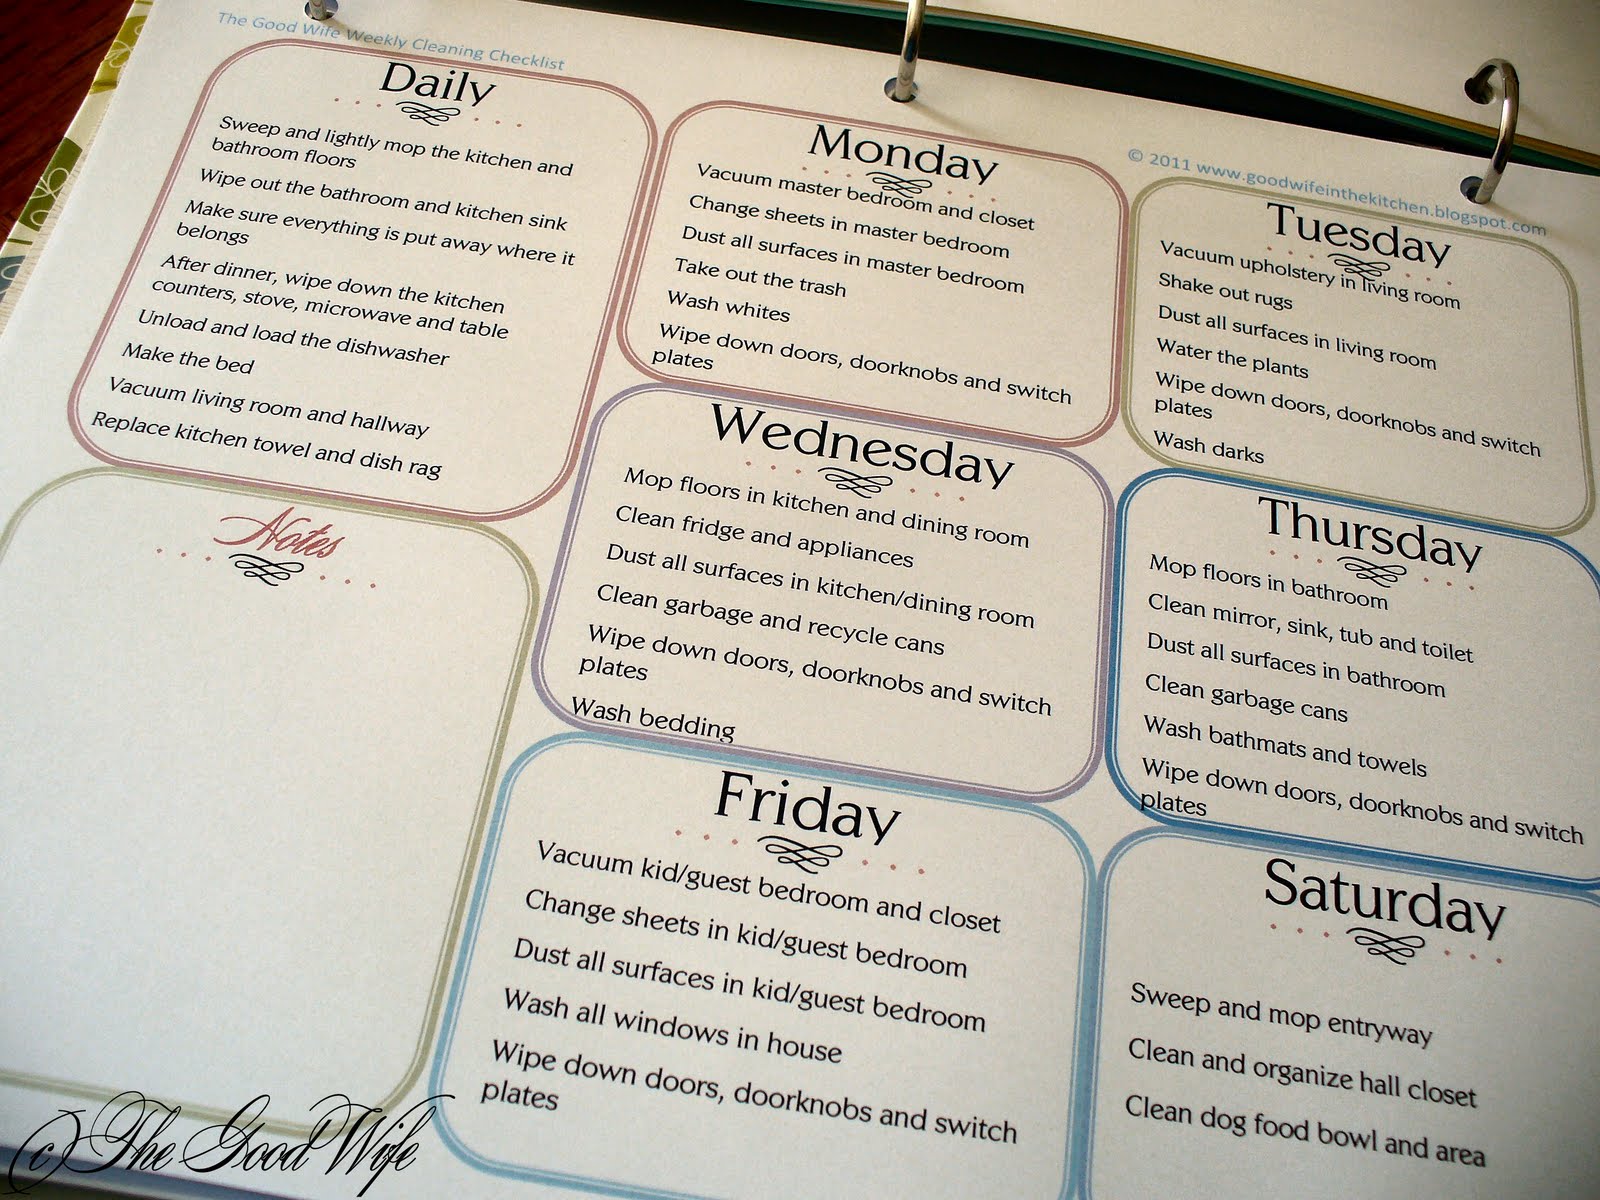 The Good Wife Weekly Cleaning Checklist
© 2011 www.goodwifeinthekitchen.blogspot.com
Daily
Sweep and lightly mop the kitchen and
bathroom floors
Wipe out the bathroom and kitchen sink
Make sure everything is put away where it
belongs
After dinner, wipe down the kitchen
counters, stove, microwave and table
Unload and load the dishwasher
Make the bed
Vacuum living room and hallway
Replace kitchen towel and dish rag
Notes
Monday
Vacuum master bedroom and closet
Change sheets in master bedroom
Dust all surfaces in master bedroom
Take out the trash
Wash whites
Wipe down doors, doorknobs and switch
plates
Tuesday
Vacuum upholstery in living room
Shake out rugs
Dust all surfaces in living room
Water the plants
Wipe down doors, doorknobs and switch
plates
Wash darks
Wednesday
Mop floors in kitchen and dining room
Clean fridge and appliances
Dust all surfaces in kitchen/dining room
Clean garbage and recycle cans
Wipe down doors, doorknobs and switch
plates
Wash bedding
Thursday
Mop floors in bathroom
Clean mirror, sink, tub and toilet
Dust all surfaces in bathroom
Clean garbage cans
Wash bathmats and towels
Wipe down doors, doorknobs and switch
plates
Friday
Vacuum kid/guest bedroom and closet
Change sheets in kid/guest bedroom
Dust all surfaces in kid/guest bedroom
Wash all windows in house
Wipe down doors, doorknobs and switch
plates
Saturday
Sweep and mop entryway
Clean and organize hall closet
Clean dog food bowl and area
(c) The Good Wife